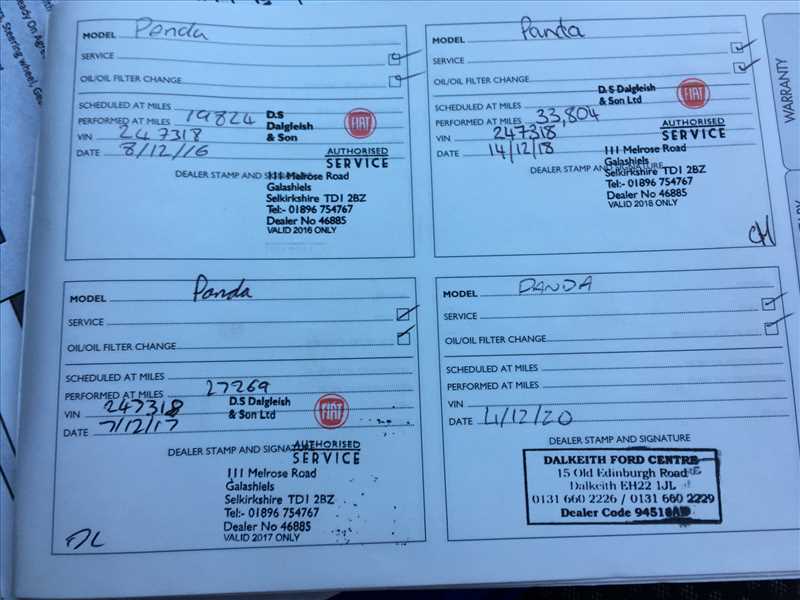 eady On Agre
, Steering wheel, Ge
MODEL Panda
SERVICE
OIL/OIL FILTER CHANGE
SCHEDULED AT MILES
PERFORMED AT MILES 19824
VIN 247318
DATE 8/12/16
D.S
Dalgleish
& Son
FIAT
AUTHORISED
SERVICE
DEALER STAMP AND
111 Melrose Road
Galashiels
Selkirkshire TD1 2BZ
Tel:- 01896 754767
Dealer No 46885
VALID 2016 ONLY
MODEL Panda
SERVICE
OIL/OIL FILTER CHANGE
SCHEDULED AT MILES
PERFORMED AT MILES 33,804
VIN 247318
DATE 14/12/18
D.S Dalgleish
& Son Ltd
FIAT
AUTHORISED
SERVICE
DEALER STAMP AND SIGNATURE
111 Melrose Road
Galashiels
Selkirkshire TD1 2BZ
Tel:- 01896 754767
Dealer No 46885
VALID 2018 ONLY
WARRANTY
MODEL Panda
SERVICE
OIL/OIL FILTER CHANGE
SCHEDULED AT MILES
PERFORMED AT MILES 27269
VIN 247318
DATE 7/12/17
D.S Dalgleish
& Son Ltd
FIAT
AUTHORISED
SERVICE
DEALER STAMP AND SIGNATURE
111 Melrose Road
Galashiels
Selkirkshire TD1 2BZ
Tel:- 01896 754767
Dealer No 46885
VALID 2017 ONLY
MODEL PANDA
SERVICE
OIL/OIL FILTER CHANGE
SCHEDULED AT MILES
PERFORMED AT MILES
VIN
DATE 4/12/20
DEALER STAMP AND SIGNATURE
DALKEITH FORD CENTRE
15 Old Edinburgh Road
Dalkeith EH22 1JL
0131 660 2226 / 0131 660 2229
Dealer Code 94510